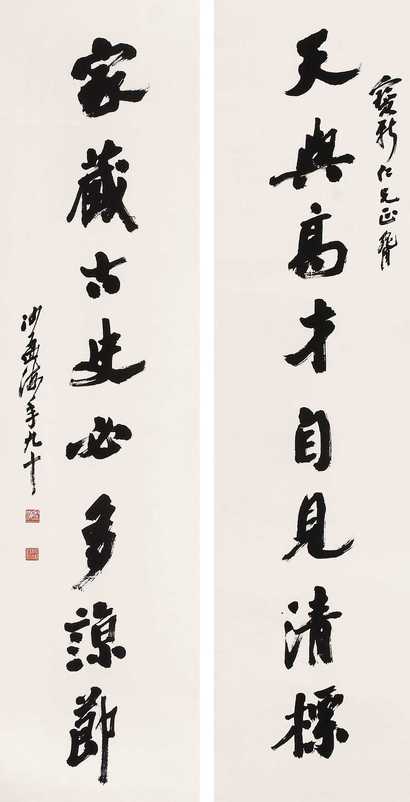 寶新仁兄正腕
天與高才自見清標
家藏古史必多諒節
沙孟海年九十